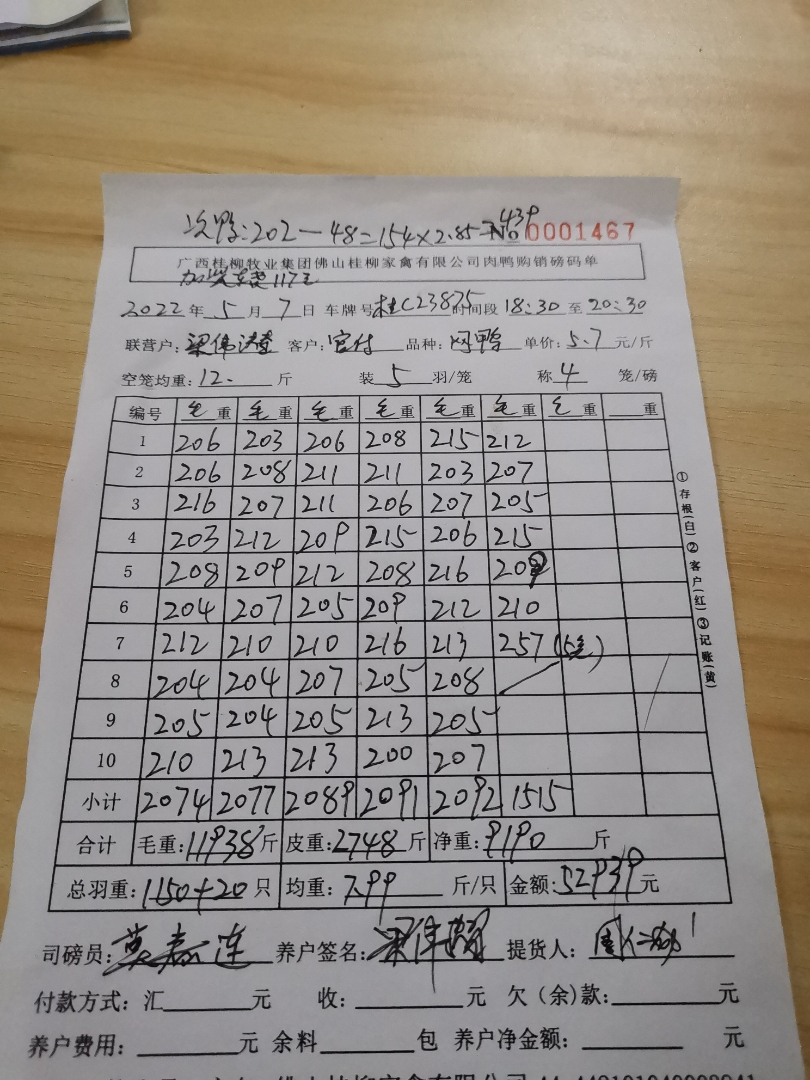 次鸭:202-48=154×2.85=439
№0001467
广西桂柳牧业集团佛山桂柳家禽有限公司肉鸭购销磅码单
117元
2022年5月7日 车牌号桂C23875时间段18:30至20:30
联营户: 梁伟 客户: 官付 品种: 网鸭 单价: 5.7 元/斤
空笼均重: 12. 斤 装 5 羽/笼 称 4 笼/磅
编号 毛重 毛重 毛重 毛重 毛重 毛重 毛重 重
1 206 203 206 208 215 212
2 206 208 211 211 203 207
3 216 207 211 206 207 205
4 203 212 209 215 206 215
5 208 209 212 208 216 209
6 204 207 205 209 212 210
7 212 210 210 216 213 257 (5笼)
8 204 204 207 205 208
9 205 204 205 213 205
10 210 213 213 200 207
小计 2074 2077 2089 2091 2092 1515
合计 毛重: 11938 斤 皮重: 2748 斤 净重: 9190 斤
总羽重: 1150+20 只 均重: 7.99 斤/只 金额: 52939 元
司磅员: 莫春连 养户签名: 梁伟 提货人:
付款方式: 汇 元 收: 元 欠(余)款: 元
养户费用: 元 余料 包 养户净金额: 元
①存根(白)②客户(红)③记账(黄)
佛山桂柳家禽有限公司